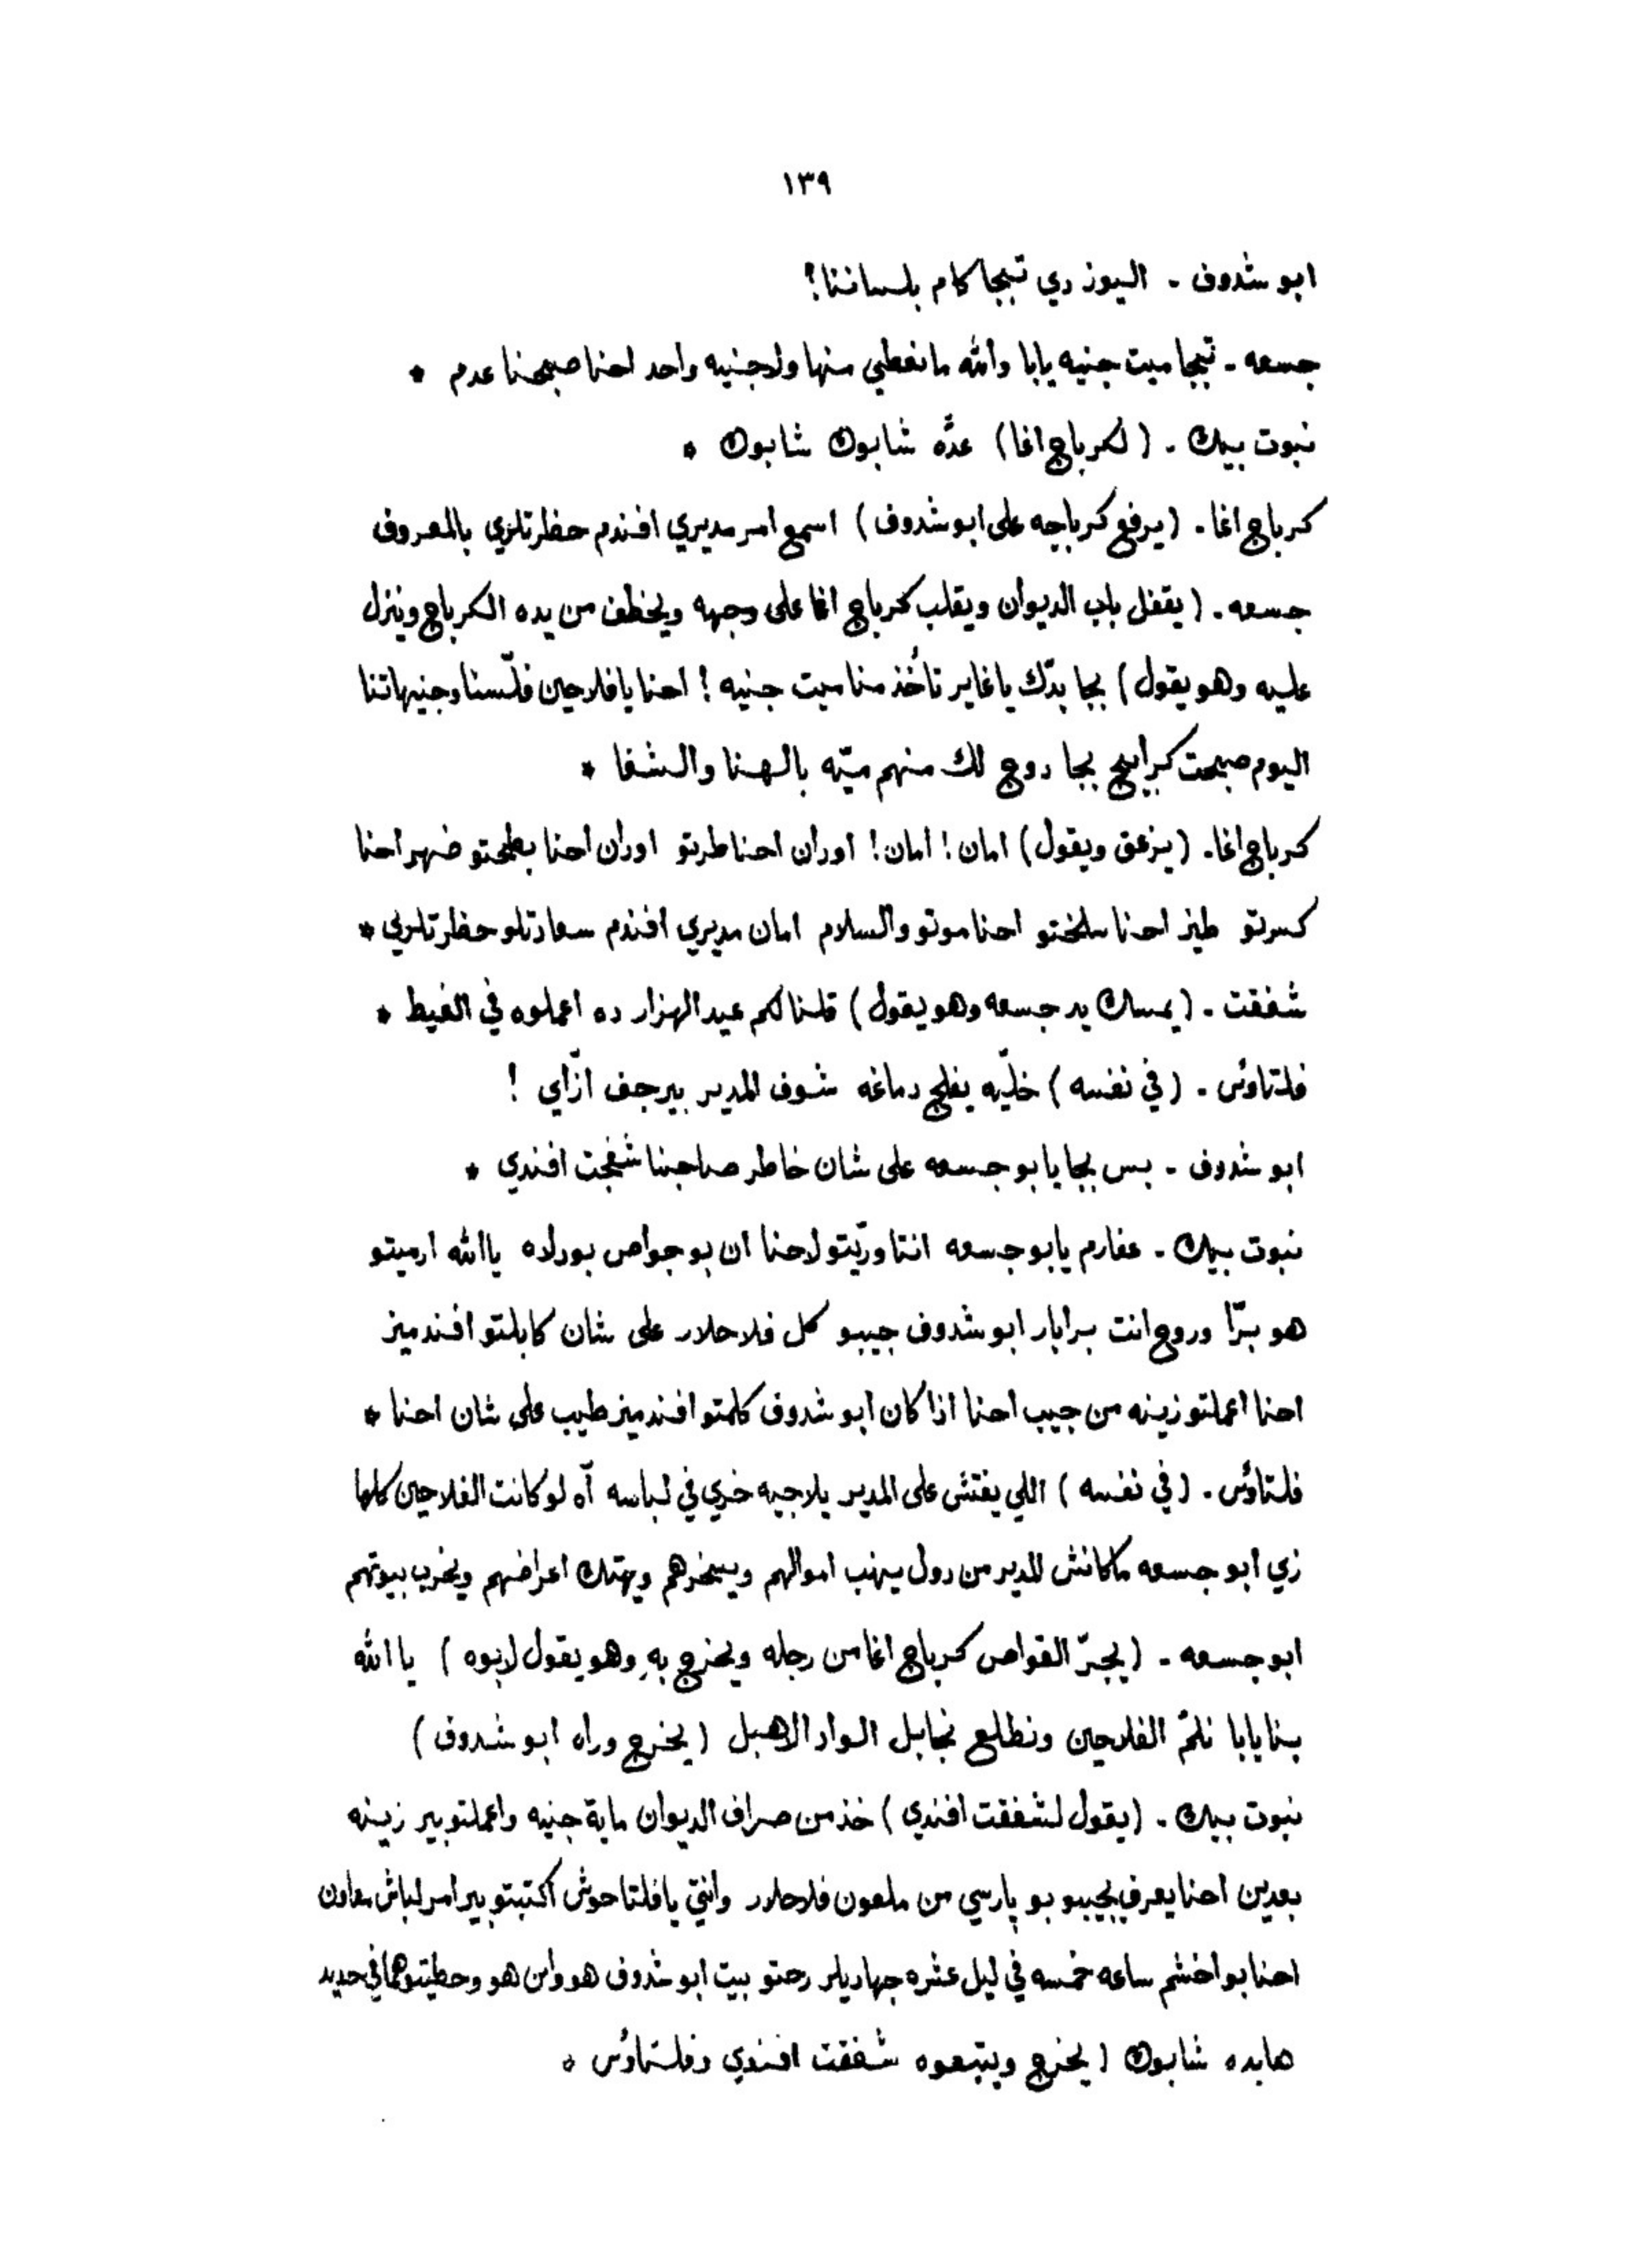 ١٣٩
ابو شدوف - اليوز دي تبجا كام بلساننا؟
جسعه - تبجا ميت جنيه يابا والله ما نعطي منها ولا جنيه واحد احنا صبحنا عدم *
نبوت بيك - (لكرباج اغا) عدّه شابوك شابوك *
كرباج اغا - (يرفع كرباجه على ابو شدوف) اسمع امر مديري افندم حظرتلري بالمعروف
جسعه - (يقفل باب الديوان ويقلب كرباج اغا على وجهه ويخطف من يده الكرباج وينزل
عليه وهو يقول) بجا بدّك يا غاير تأخذ منا ميت جنيه! احنا يا فلاحين فلّسنا وجنيهاتنا
اليوم صبحت كرابيج بجا روح لك منهم ميّه بالهنا والشفا *
كرباج اغا - (يزعق ويقول) امان! امان! اوران احنا طربتو اوران احنا بطحتو ضهر احنا
كسرتو طيز احنا سلختو احنا موتو والسلام امان مديري افندم سعادتلو حظرتلري *
شفقت - (يمسك يد جسعه وهو يقول) قلنا لكم عيد الهزار ده اعملوه في الغيط *
فلتاؤس - (في نفسه) خلّيه يفلح دماغه شوف المدير بيرجف ازّاي!
ابو شدوف - بس بجا يابو جسعه على شان خاطر صاحبنا شفجت افندي *
نبوت بيك - عفارم يابو جسعه انتا وريّتو لاحنا ان بو جواص بورلاه ياالله ارميتو
هو برّا وروح انت برابار ابو شدوف جيبو كل فلاحلار على شان كابلتو افندميز
احنا اعملتو زينه من جيب احنا اذا كان ابو شدوف كلمتو افندميز طيب على شان احنا *
فلتاؤس - (في نفسه) اللي يفتش على المدير يلاجيه خري في لباسه آه لو كانت الفلاحين كلها
زي ابو جسعه ما كانش المدير من دول ينهب اموالهم ويسخرهم ويهتك اعراضهم ويخرب بيوتهم
ابو جسعه - (يجرّ القواص كرباج اغا من رجله ويخرج بهِ وهو يقول لابوه) ياالله
بنا يابا نلمّ الفلاحين ونطلع نجابل الواد الاهبل (يخرج وراه ابو شدوف)
نبوت بيك - (يقول لشفقت افندي) خذ من صراف الديوان ماية جنيه واعملتو بير زينه
بعدين احنا يعرف يجيبو بو پارسي من ملعون فلاحلار وانتي يا فلتاحوش اكتبتو بير امر لباش معاون
احنا بو اخشم ساعه خمسه في ليل عشره جهاديلر رحتو بيت ابو شدوف هو وابن هو وحطيتوهما في حديد
هايده شابوك (يخرج ويتبعوه شفقت افندي وفلتاؤس *